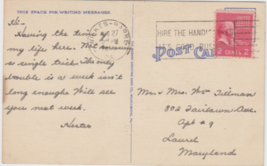 THIS SPACE FOR WRITING MESSAGES
Hi -
Having the time of
my life here. Not missing
a single trick. The only
trouble is a week isn't
long enough. Will see
you next week.
27
HIRE THE HANDI
POST CARD
2 CENTS 2
Mr. & Mrs. Wm Tillman
802 Fairlawn Ave.
Apt # 9
Laurel
Maryland